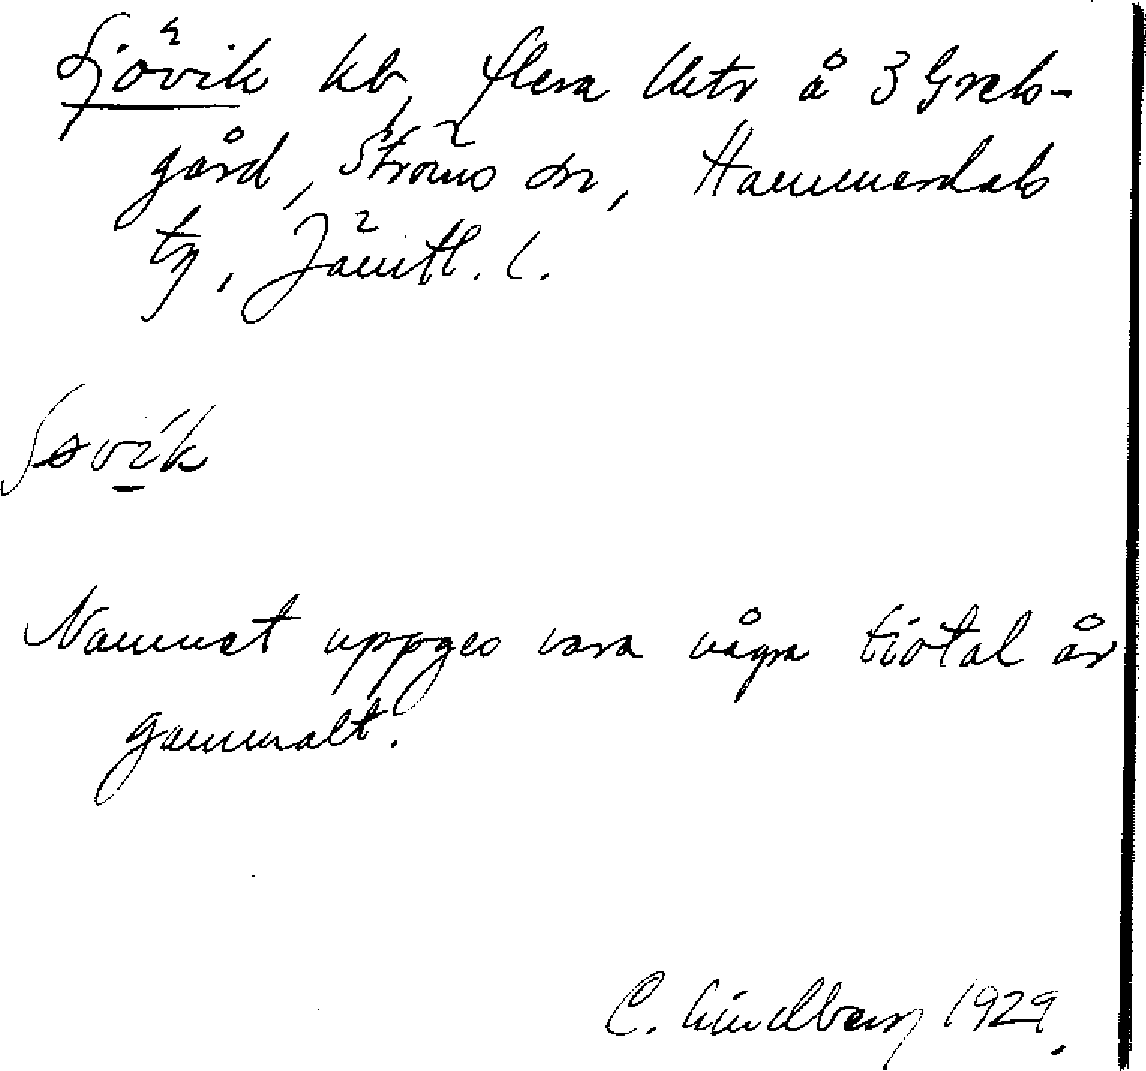 Sjövik kb, flera lhtr å 3 Grels-
gård, Ströms sn, Hammerdals
tg, Jämtl. l.
Namnet uppges vara några tiotal år
gammalt.
C. Lindberg 1929.